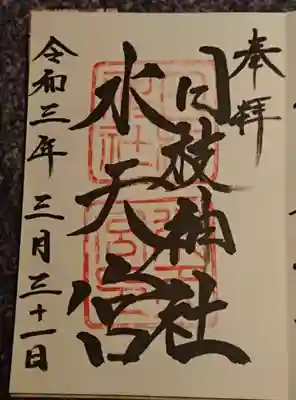 奉拝
日枝神社
水天宮
令和三年 三月三十一日